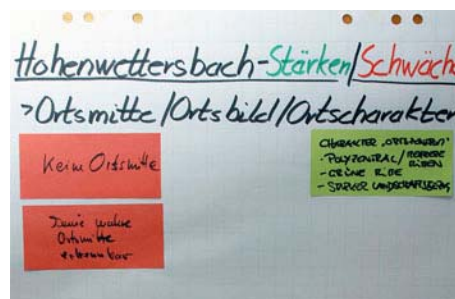 Hohenwettersbach-Stärken/Schwäch
>Ortsmitte/Ortsbild/Ortscharakter
Keine Ortsmitte
wahre
Ortsmitte
erkennbar
CHARAKTER
- POLYZENTRAL/
- GRÜNE
- STARKER LANDSCHAFTSBEZUG